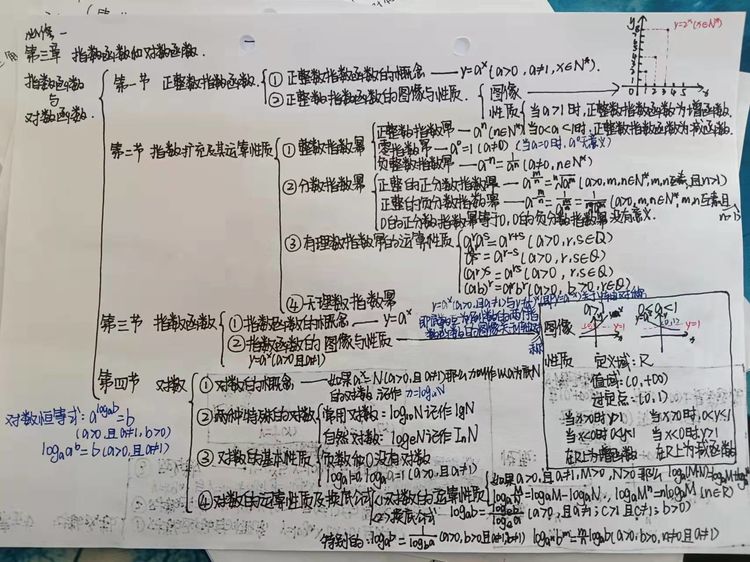 必修一
第三章 指数函数和对数函数.
y=2ˣ(x∈N*)
指数函数与对数函数
第一节 正整数指数函数
①正整数指数函数的概念——y=aˣ(a>0,a≠1,x∈N*).
②正整数指数函数的图像与性质.
图像
性质
当a>1时,正整数指数函数为增函数.
当0<a<1时,正整数指数函数为减函数.
第二节 指数扩充及其运算性质
①整数指数幂
正整数指数幂——aⁿ(n∈N*)
零指数幂——a⁰=1(a≠0) (当a=0时,a⁰无意义)
负整数指数幂——a⁻ⁿ=1/aⁿ(a≠0,n∈N*)
②分数指数幂
正整的正分数指数幂——a^(m/n)=ⁿ√aᵐ(a>0,m,n∈N*,m,n互素,且n>1)
正整的负分数指数幂——a^(-m/n)=1/a^(m/n)=1/ⁿ√aᵐ(a>0,m,n∈N*,m,n互素且n>1)
0的正分数指数幂等于0,0的负分数指数幂没有意义.
③有理数指数幂的运算性质
aʳaˢ=aʳ⁺ˢ(a>0,r,s∈Q)
aʳ/aˢ=aʳ⁻ˢ(a>0,r,s∈Q)
(aʳ)ˢ=aʳˢ(a>0,r,s∈Q)
(ab)ʳ=aʳbʳ(a>0,b>0,r∈Q)
④无理数指数幂
第三节 指数函数
①指数函数的概念——y=aˣ
②指数函数的图像与性质
y=aˣ(a>0且a≠1)
图像
a>1
0<a<1
y=1
y=1
性质 定义域:R
值域:(0,+∞)
过定点:(0,1)
当x>0时y>1 当x>0时,0<y<1
当x<0时0<y<1 当x<0时y>1
在R上为增函数 在R上为减函数
第四节 对数
①对数的概念——如果aˣ=N(a>0,且a≠1)那么
的对数 记作x=logₐN
对数恒等式:a^(logₐb)=b
(a>0且a≠1,b>0)
logₐaᵇ=b(a>0,且a≠1)
②两种特殊的对数
常用对数:log₁₀N记作lgN
自然对数:logₑN记作InN
③对数的基本性质
负数和0没有对数
logₐ1=0,logₐa=1(a>0,且a≠1)
④对数的运算性质及换底公式
(1)对数的运算性质
如果a>0,且a≠1,M>0,N>0那么
logₐM-logₐN, logₐMⁿ=nlogₐM(n∈R)
(2)换底公式
特别的:logₐb=1/log_b a(a>0,b>0且a≠1,b≠1)